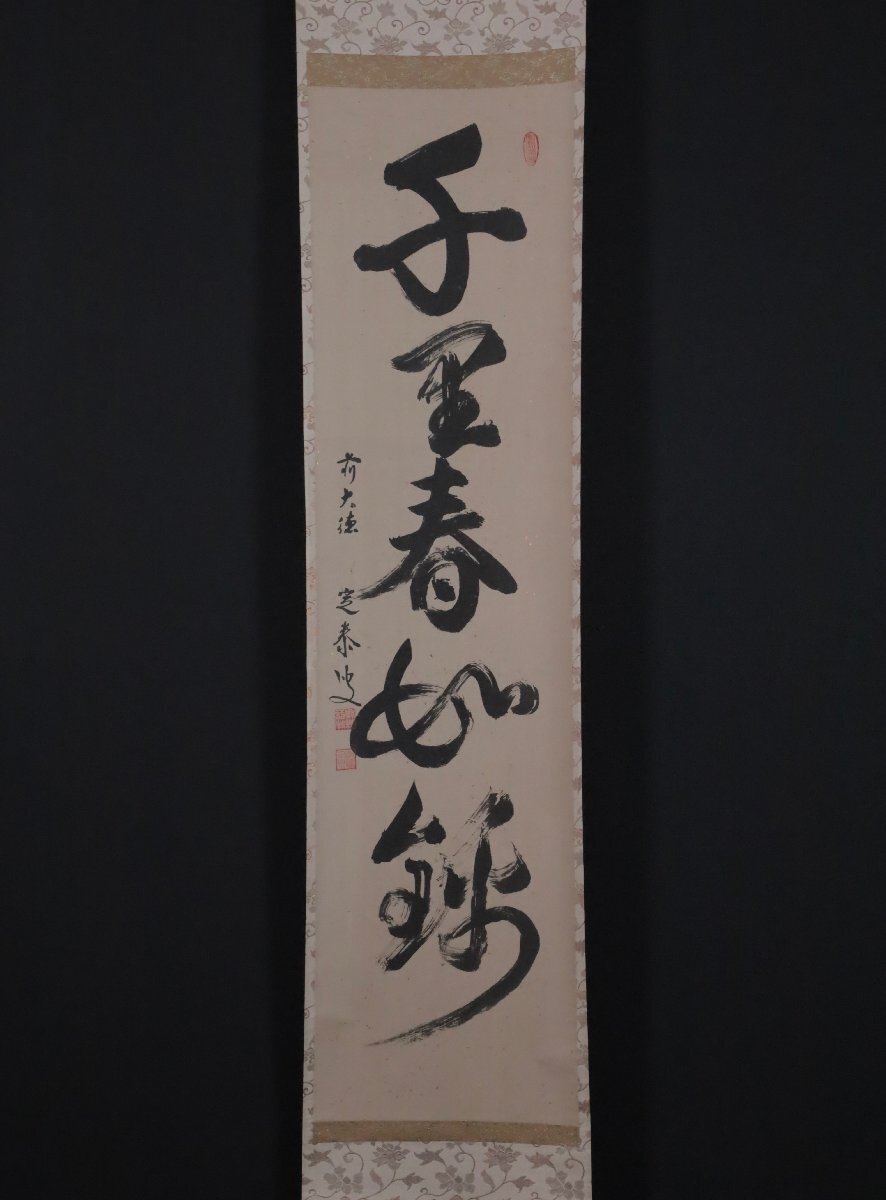 千里春如錦
前大徳 定泰叟